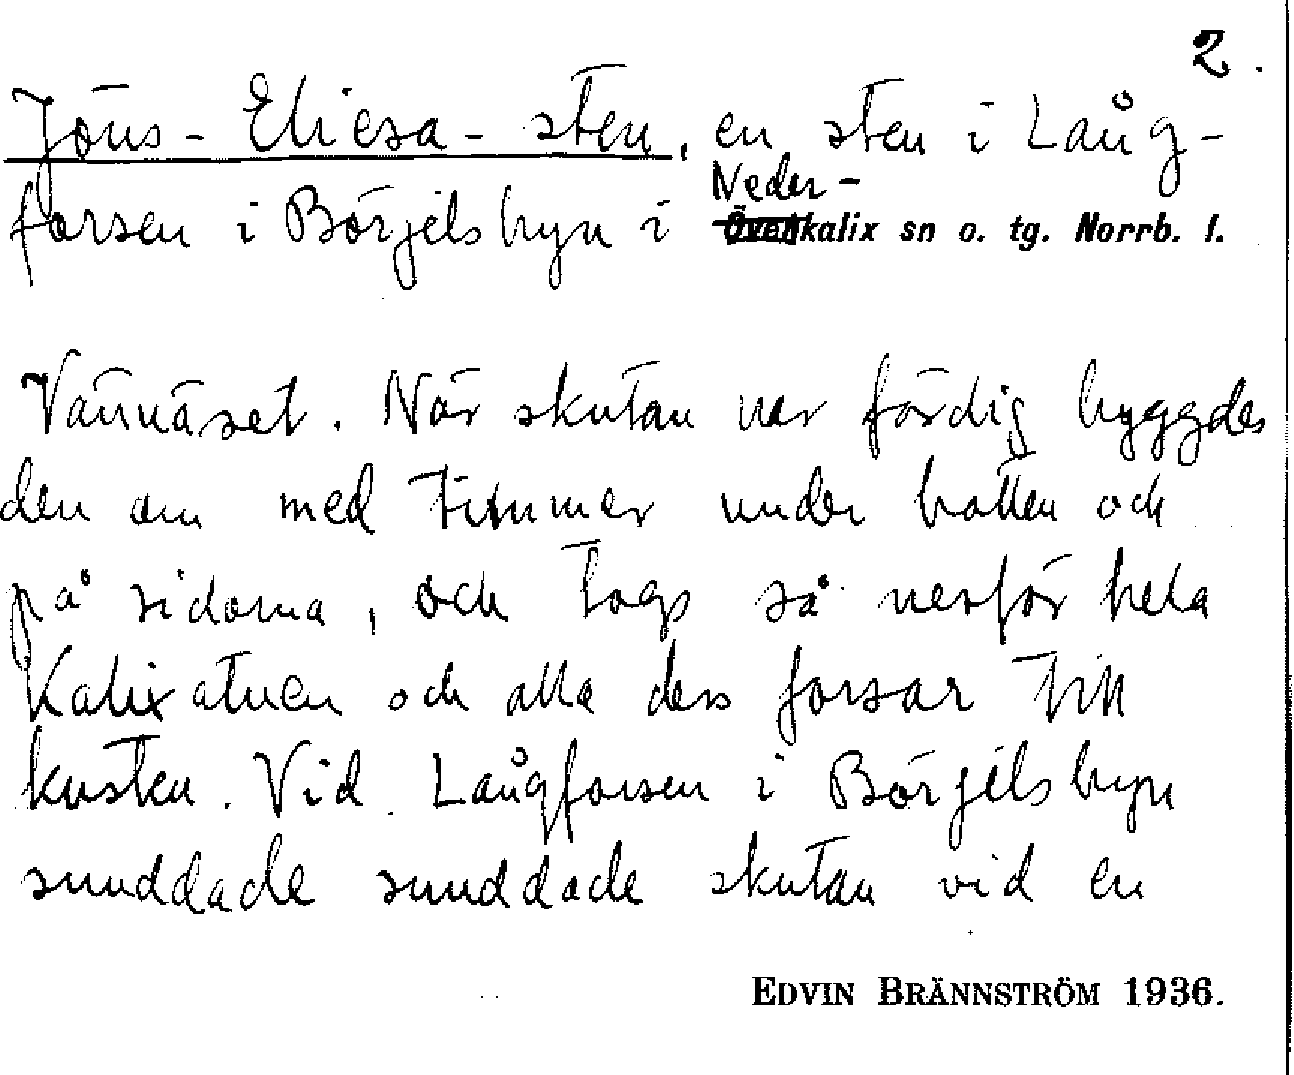 2.
Jöns-Eliesa-sten, en sten i Lång-
forsen i Börjelsbyn i Neder-
Överkalix sn o. tg. Norrb. l.
Vännäset. När skutan var färdig byggdes
den om med timmer under botten och
på sidorna, och togs så nerför hela
Kalixälven och alla dess forsar till
kusten. Vid Långforsen i Börjelsbyn
snuddade snuddade skutan vid en
EDVIN BRÄNNSTRÖM 1936.